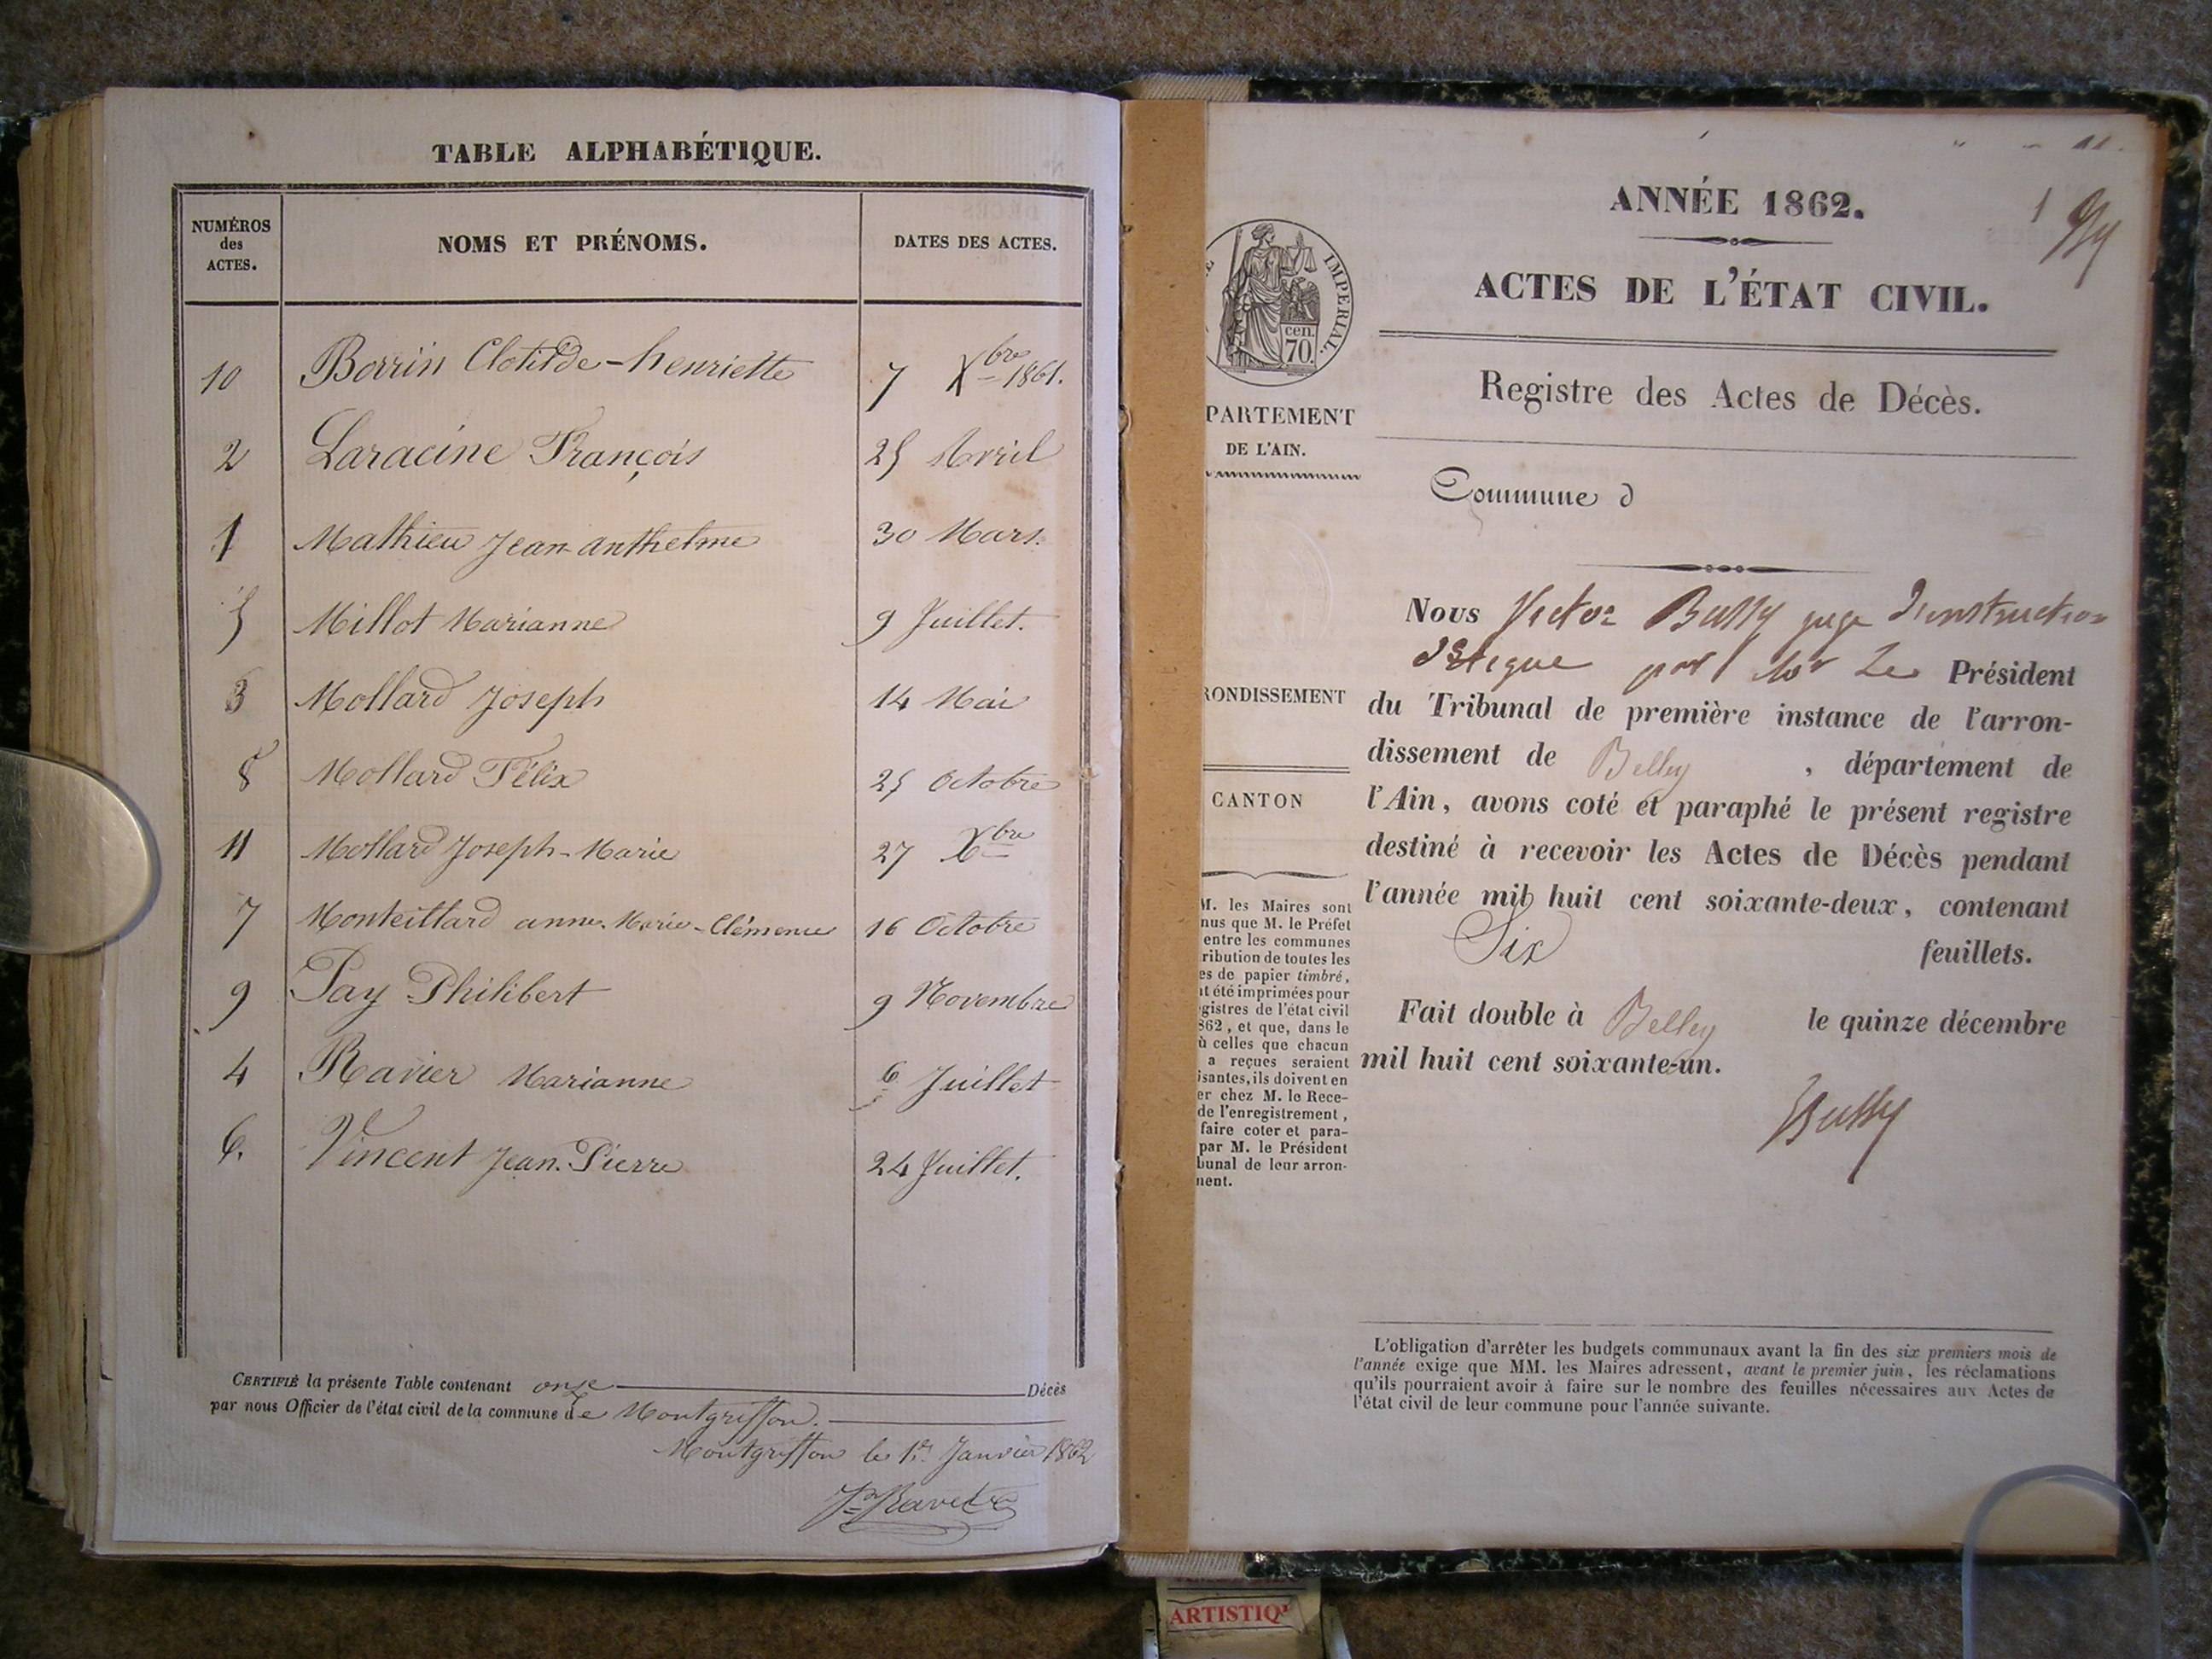 TABLE ALPHABÉTIQUE.
NUMÉROS des ACTES. NOMS ET PRÉNOMS. DATES DES ACTES.
10 Borrin Clotilde-henriette 7 Xbre 1861.
2 Laracine François 25 Avril
1 Mathieu Jean-anthelme 30 Mars.
5 Millot Marianne 9 Juillet.
3 Mollard Joseph 14 Mai
8 Mollard Félix 25 Octobre
11 Mollard Joseph-Marie 27 Xbre
7 Monteillard anne-Marie-Clémence 16 Octobre
9 Pay Philibert 9 Novembre
4 Ravier Marianne 6 Juillet
6. Vincent Jean-Pierre 24 Juillet.
CERTIFIÉ la présente Table contenant onze Décès
par nous Officier de l'état civil de la commune de Montgriffon.
Montgriffon le 1er Janvier 1862
ANNÉE 1862.
1
ACTES DE L'ÉTAT CIVIL.
IMPERIAL.
cen.
70.
Registre des Actes de Décès.
PARTEMENT
DE L'AIN.
Commune d
Nous Victor Bussy juge d'instruction
par Mr Le Président
du Tribunal de première instance de l'arron-
dissement de Belley , département de
l'Ain, avons coté et paraphé le présent registre
destiné à recevoir les Actes de Décès pendant
l'année mil huit cent soixante-deux, contenant
Six feuillets.
Fait double à Belley le quinze décembre
mil huit cent soixante-un.
Bussy
RONDISSEMENT
CANTON
M. les Maires sont
nus que M. le Préfet
entre les communes
ribution de toutes les
es de papier timbré,
nt été imprimées pour
gistres de l'état civil
862, et que, dans le
ù celles que chacun
a reçues seraient
isantes, ils doivent en
er chez M. le Rece-
de l'enregistrement,
faire coter et para-
par M. le Président
bunal de leur arron-
ment.
L'obligation d'arrêter les budgets communaux avant la fin des six premiers mois de
l'année exige que MM. les Maires adressent, avant le premier juin, les réclamations
qu'ils pourraient avoir à faire sur le nombre des feuilles nécessaires aux Actes de
l'état civil de leur commune pour l'année suivante.
ARTISTIQ